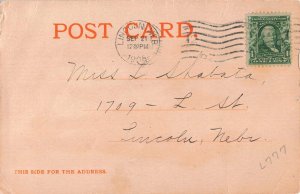 POST CARD.
LINCOLN, NEB.
SEP 21
12 30 PM
Miss L Shabata
1709 - L St.
Lincoln, Nebr.
THIS SIDE FOR THE ADDRESS.
L777